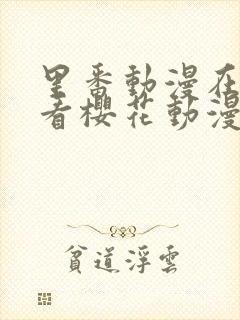 里番動漫在
看櫻花動漫
貧道浮雲